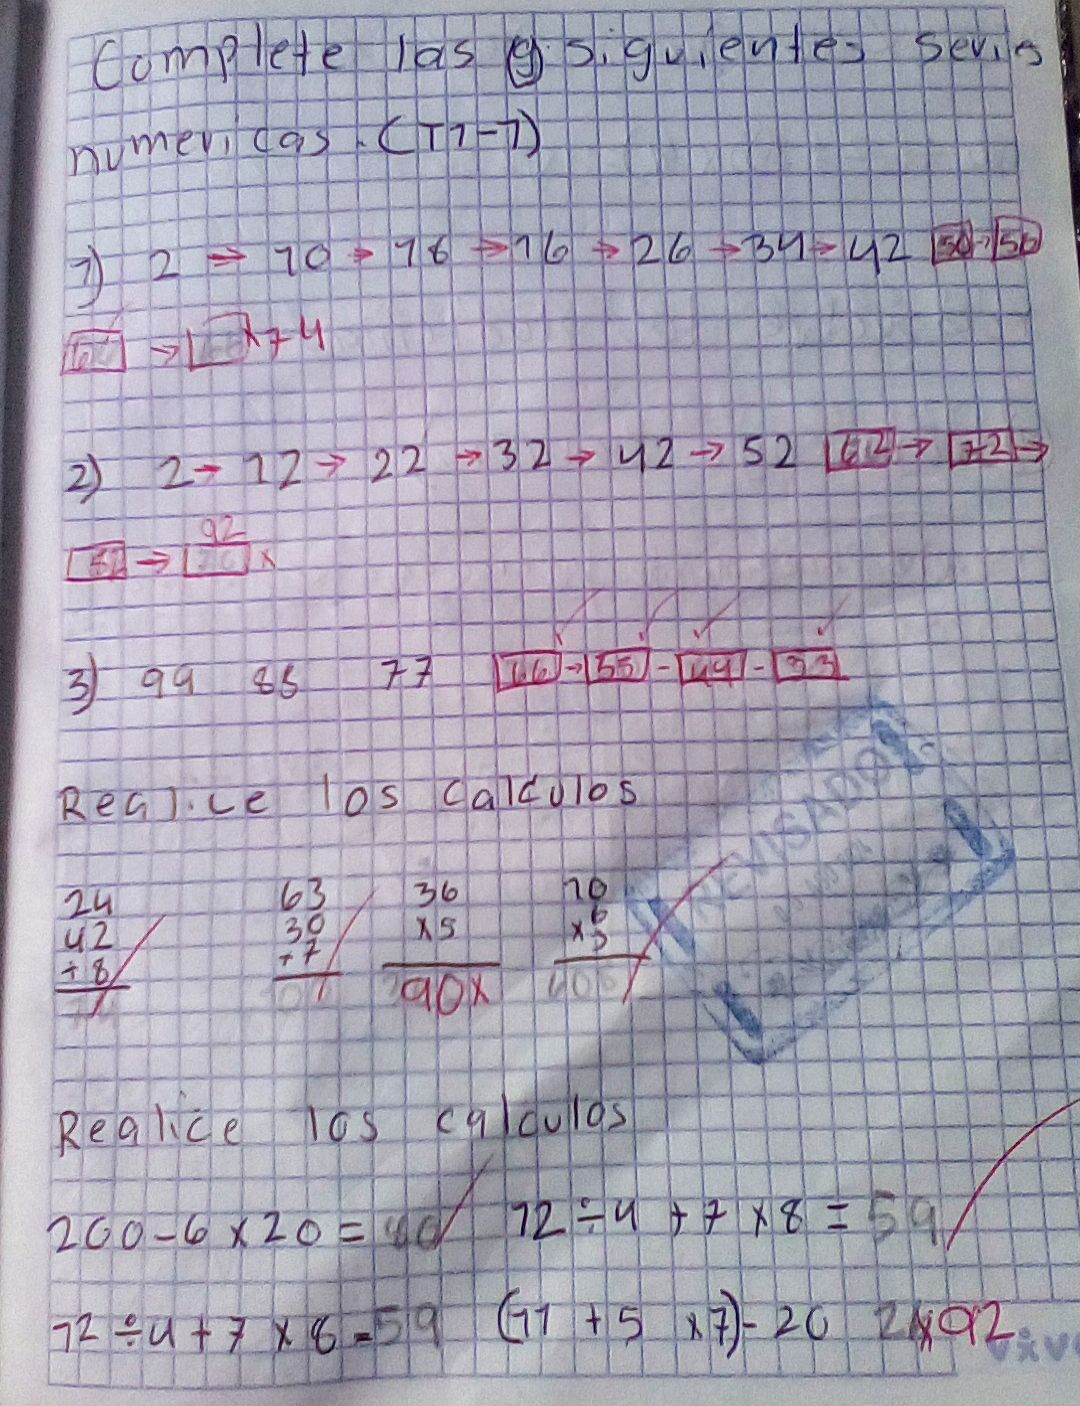 Complete las siguientes series
numericas. (T1-1)
1) 2 → 10 → 18 → 16 → 26 → 34 → 42 50 → 56
66 → × 74
2) 2 → 12 → 22 → 32 → 42 → 52 62 → 72 →
92
82 → ×
3) 99 88 77 66 → 55 - 44 - 33
Realice los calculos
24 63 36 10
42 30 ×5 6
+8 +7 ×5
90×
REVISADO
Realice los calculos
200-6×20= 12÷4+7×8=59
12÷4+7×8=59 (11+5×7)-20 92